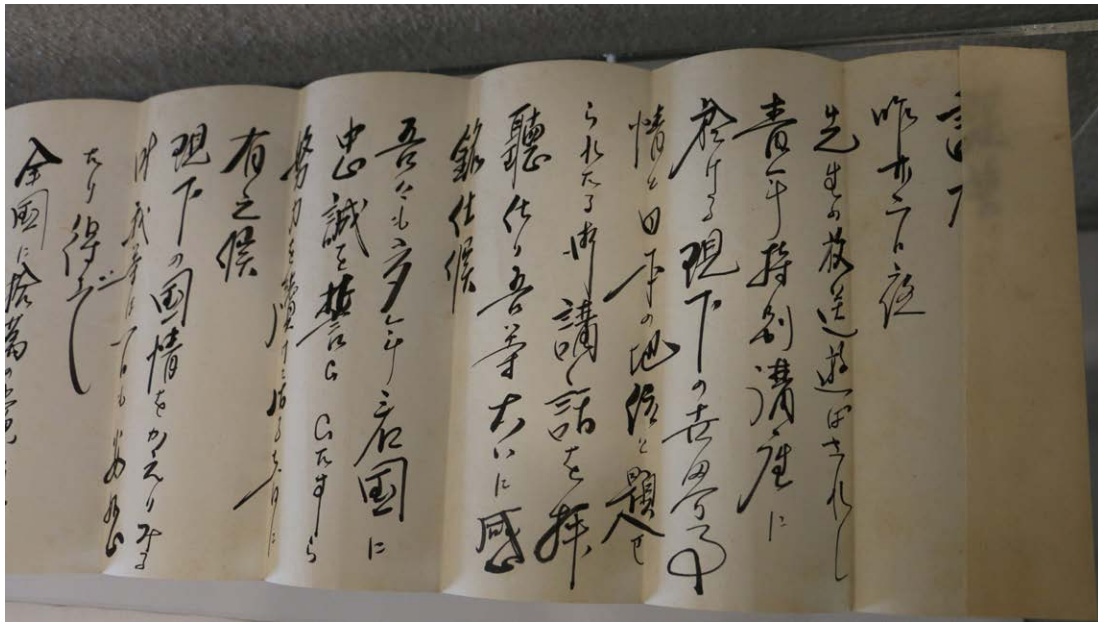 昨廿二日夜
先生の放送遊ばされし
青年特別講座に
於ける現下の世界事
情と日本の地位と題せ
られたる御講話を拝
聴仕り吾等大いに感
銘仕候
吾々も多年君国に
忠誠を誓ひひたすら
努力を續け居る者に
有之候
現下の国情をかえりみる
時我等は一日も
たり得ず
全國に拾萬の